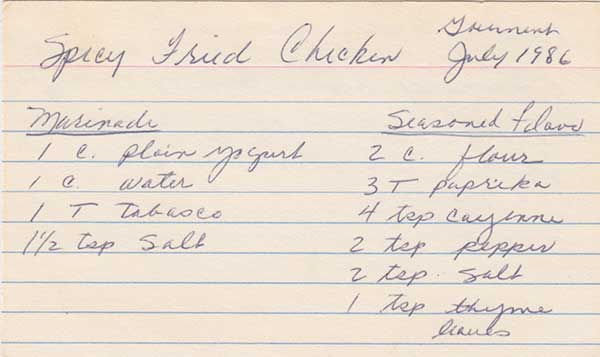 Spicy Fried Chicken
Gourmet
July 1986
Marinade
1 c. plain yogurt
1 c. water
1 T Tabasco
1 1/2 tsp salt
Seasoned Flour
2 c. flour
3 T paprika
4 tsp cayenne
2 tsp pepper
2 tsp. salt
1 tsp thyme
leaves